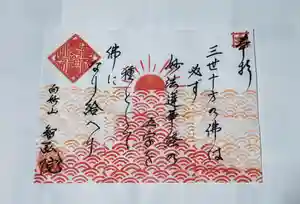 奉拝
三世十方乃佛は
必ず
妙法蓮華経の
五字を
種として
佛に
なり給へり
向妙山